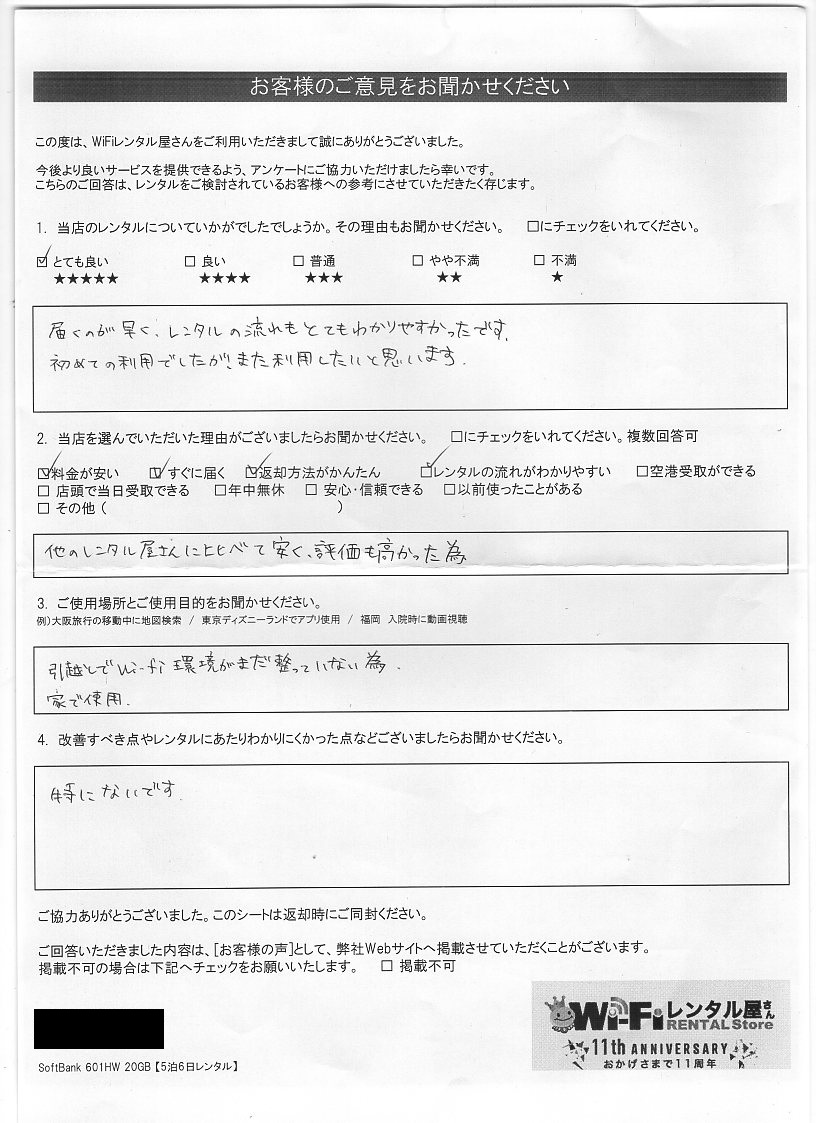 お客様のご意見をお聞かせください
この度は、WiFiレンタル屋さんをご利用いただきまして誠にありがとうございました。
今後より良いサービスを提供できるよう、アンケートにご協力いただけましたら幸いです。
こちらのご回答は、レンタルをご検討されているお客様への参考にさせていただきたく存じます。
1. 当店のレンタルについていかがでしたでしょうか。その理由もお聞かせください。 □にチェックをいれてください。
☑ とても良い □ 良い □ 普通 □ やや不満 □ 不満
★★★★★ ★★★★ ★★★ ★★ ★
届くのが早く、レンタルの流れもとてもわかりやすかったです。
初めての利用でしたが、また利用したいと思います。
2. 当店を選んでいただいた理由がございましたらお聞かせください。 □にチェックをいれてください。複数回答可
☑料金が安い ☑すぐに届く ☑返却方法がかんたん ☑レンタルの流れがわかりやすい □空港受取ができる
□ 店頭で当日受取できる □年中無休 □ 安心・信頼できる □以前使ったことがある
□ その他 ( )
他のレンタル屋さんに比べて安く、評価も高かった為
3. ご使用場所とご使用目的をお聞かせください。
例)大阪旅行の移動中に地図検索 / 東京ディズニーランドでアプリ使用 / 福岡 入院時に動画視聴
引越しでWi-fi環境がまだ整っていない為.
家で使用.
4. 改善すべき点やレンタルにあたりわかりにくかった点などございましたらお聞かせください。
特にないです.
ご協力ありがとうございました。このシートは返却時にご同封ください。
ご回答いただきました内容は、[お客様の声]として、弊社Webサイトへ掲載させていただくことがございます。
掲載不可の場合は下記へチェックをお願いいたします。 □ 掲載不可
Wi-Fiレンタル屋さん
RENTAL Store
11th ANNIVERSARY
おかげさまで11周年
SoftBank 601HW 20GB【5泊6日レンタル】